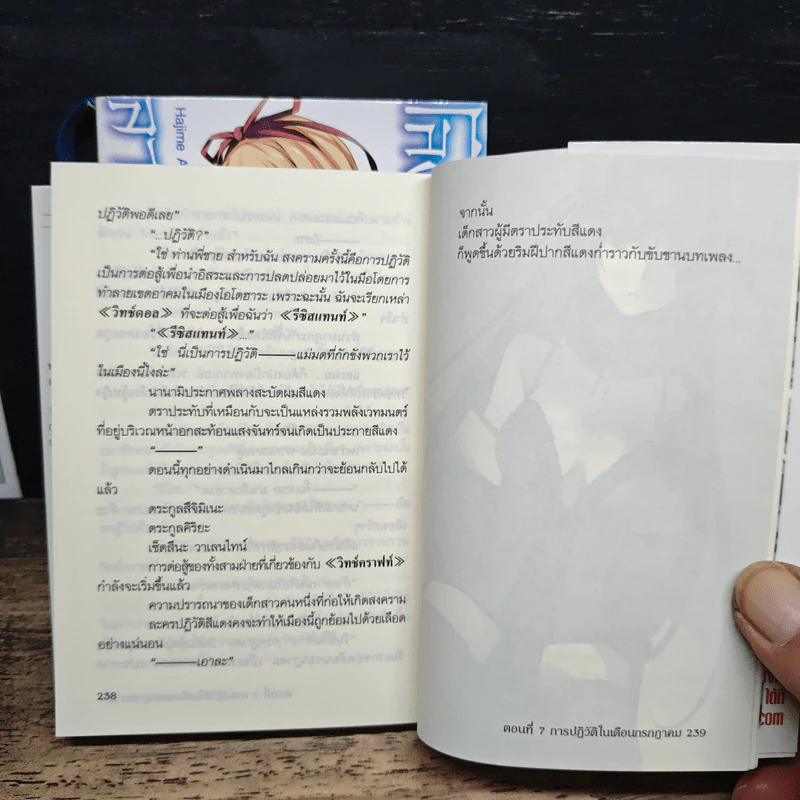 Hajime A
ปฏิวัติพอดีเลย"
"...ปฏิวัติ?"
"ใช่ ท่านพี่ชาย สำหรับฉัน สงครามครั้งนี้คือการปฏิวัติ
เป็นการต่อสู้เพื่อนำอิสระและการปลดปล่อยมาไว้ในมือโดยการ
ทำลายเขตอาคมในเมืองโอโตฮาระ เพราะฉะนั้น ฉันจะเรียกเหล่า
≪วิทช์ดอล≫ ที่จะต่อสู้เพื่อฉันว่า ≪รีซิสแทนท์≫"
"≪รีซิสแทนท์≫..."
"ใช่ นี่เป็นการปฏิวัติ———แม่มดที่กักขังพวกเราไว้
ในเมืองนี้ไงล่ะ"
นานามิประกาศพลางสะบัดผมสีแดง
ตราประทับที่เหมือนกับจะเป็นแหล่งรวมพลังเวทมนตร์
ที่อยู่บริเวณหน้าอกสะท้อนแสงจันทร์จนเกิดเป็นประกายสีแดง
"———"
ตอนนี้ทุกอย่างดำเนินมาไกลเกินกว่าจะย้อนกลับไปได้
แล้ว
ตระกูลสึจิมิเนะ
ตระกูลคิริยะ
เช็ตสึนะ วาเลนไทน์
การต่อสู้ของทั้งสามฝ่ายที่เกี่ยวข้องกับ ≪วิทช์คราฟท์≫
กำลังจะเริ่มขึ้นแล้ว
ความปรารถนาของเด็กสาวคนหนึ่งที่ก่อให้เกิดสงคราม
ละครปฏิวัติสีแดงคงจะทำให้เมืองนี้ถูกย้อมไปด้วยเลือด
อย่างแน่นอน
"———เอาละ"
238
จากนั้น
เด็กสาวผู้มีตราประทับสีแดง
ก็พูดขึ้นด้วยริมฝีปากสีแดงก่ำราวกับขับขานบทเพลง...
ตอนที่ 7 การปฏิวัติในเดือนกรกฎาคม 239
ได้ที่
.com